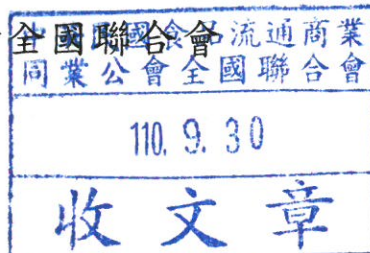 全國聯合會
國食品流通商業
同業公會全國聯合會
110. 9. 30
收文章